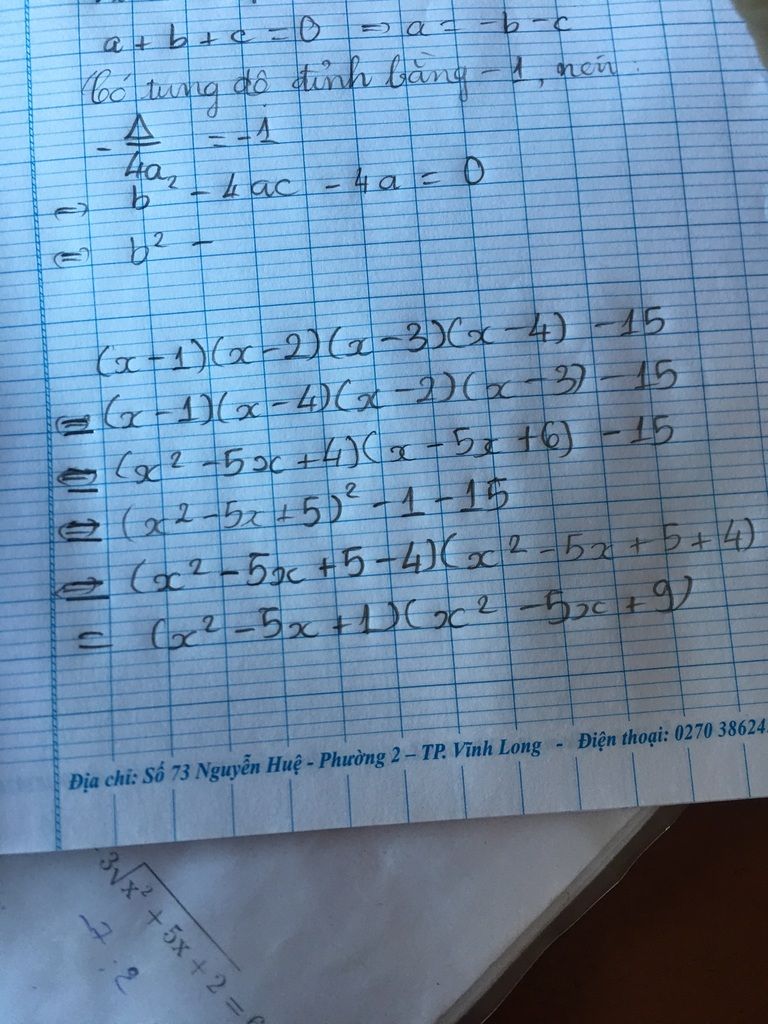 a + b + c = 0 => a = -b - c
Có tung độ đỉnh bằng -1, nên:
- Δ/4a = -1
<=> b² - 4ac - 4a = 0
<=> b² -
(x - 1)(x - 2)(x - 3)(x - 4) - 15
= (x - 1)(x - 4)(x - 2)(x - 3) - 15
= (x² - 5x + 4)(x - 5x + 6) - 15
= (x² - 5x + 5)² - 1 - 15
= (x² - 5x + 5 - 4)(x² - 5x + 5 + 4)
= (x² - 5x + 1)(x² - 5x + 9)
Địa chỉ: Số 73 Nguyễn Huệ - Phường 2 – TP. Vĩnh Long - Điện thoại: 0270 38624
3√x² + 5x + 2 =